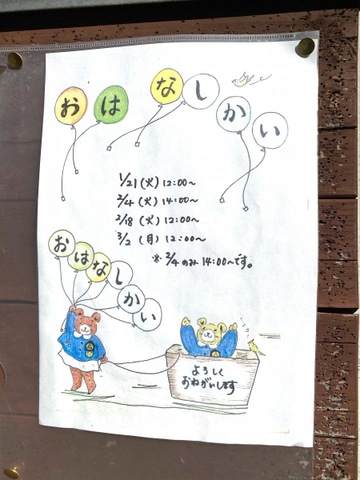 おはなしかい
1/21(火)12:00〜
2/4(火)14:00〜
2/18(火)12:00〜
3/2(月)12:00〜
※2/4のみ14:00〜です。
おはなしかい
よろしく
おねがいします